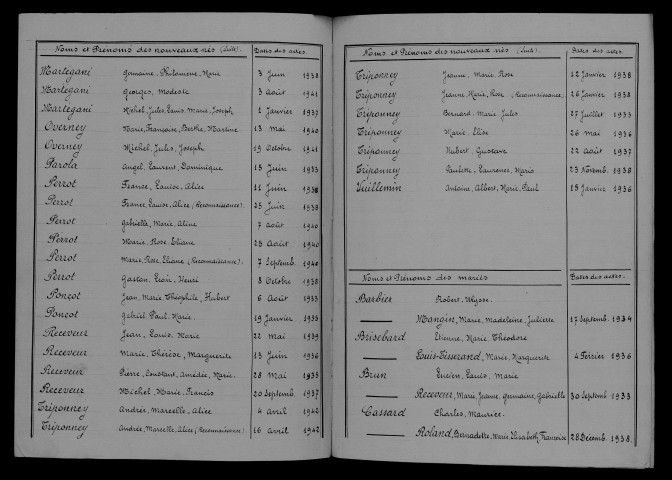 Noms et Prénoms des nouveaux nés (Suite). Dates des actes.
Martegani Germaine, Philomène, Rose 3 Juin 1938
Martegani Georges, Modeste 3 Août 1941
Martegani Michel, Jules, Louis, Marie, Joseph 1 Janvier 1937
Overney Marie, Françoise, Berthe, Martine 13 Mai 1940
Overney Michel, Jules, Joseph 19 Octobre 1941
Parola Angel, Laurent, Dominique 15 Juin 1933
Perrot France, Louise, Alice 11 Juin 1938
Perrot France, Louise, Alice (Reconnaissance) 25 Juin 1938
Perrot Gabrielle, Marie, Aline 7 Août 1940
Perrot Marie, Rose, Eliane 23 Août 1940
Perrot Marie, Rose, Eliane (Reconnaissance) 7 Septemb. 1940
Perrot Gaston, Léon, Henri 8 Octobre 1938
Ponçot Jean, Marie, Théophile, Hubert 6 Août 1933
Ponçot Gabriel, Paul, Marie 19 Janvier 1935
Receveur Jean, Louis, Marie 22 Mai 1939
Receveur Marie, Thérèse, Marguerite 13 Juin 1936
Receveur Pierre, Constant, Amédée, Marie 28 Mai 1935
Receveur Michel, Marie, Francis 20 Septemb. 1937
Triponney Andrée, Marcelle, Alice 4 Avril 1942
Triponney Andrée, Marcelle, Alice (Reconnaissance) 16 Avril 1942
Noms et Prénoms des nouveaux nés (Suite). Dates des actes.
Triponney Jeanne, Marie, Rose 12 Janvier 1938
Triponney Jeanne, Marie, Rose (Reconnaissance) 26 Janvier 1938
Triponney Bernard, Marie, Jules 27 Juillet 1933
Triponney Marie, Elise 26 Mai 1936
Triponney Hubert, Gustave 22 Août 1937
Triponney Paulette, Laurence, Marie 23 Novemb. 1938
Vuillemin Antoine, Albert, Marie, Paul 15 Janvier 1936
Noms et Prénoms des mariés Dates des actes.
Barbier Robert, Ulysse
Mangin, Marie, Madeleine, Juliette 17 Septemb. 1934
Brisebard Etienne, Marie, Théodore
Louis-Tisserand, Marie, Marguerite 4 Février 1936
Brun Lucien, Louis, Marie
Receveur, Marie, Jeanne, Germaine, Gabrielle 30 Septemb 1933
Cassard Charles, Maurice
Roland, Bernadette, Marie, Elisabeth, Françoise 28 Décemb. 1938.